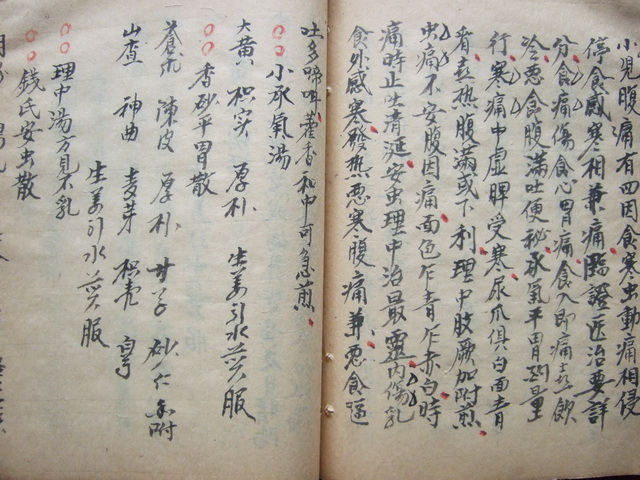 小児腹痛有四因食寒虫動痛相侵
停食感寒相兼痛臨證医治要詳
分食痛傷食心胃痛食入即痛喜飲
冷悪食腹滿吐便秘承氣平胃酌量
行寒痛中虛脾受寒尿爪俱白面青
看喜热腹滿或下利理中肢厥加附煎
虫痛不安腹因痛面色乍青乍赤白時
痛時止吐清涎安虫理中治最靈内傷乳
食外感寒發热悪寒腹痛兼悪食嘔
吐多啼呌藿香和中可急煎
小承氣湯
大黄 枳实 厚朴 生姜引水煎服
香砂平胃散
蒼朮 陳皮 厚朴 甘草 砂仁 香附
山查 神曲 麦芽 枳壳 白芍
生姜引水煎服
理中湯方見不乳
錢氏安虫散